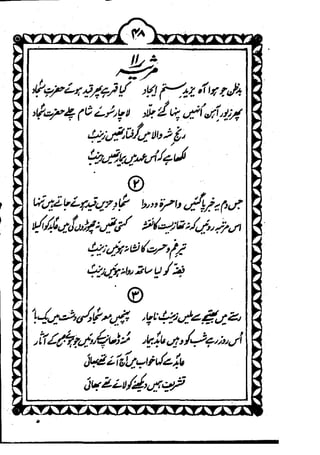 ۴۸
مرثیہ ۱۱
بدظن جو ہوا آہ یزید ستم ایجاد کیا قہر ہے پھر قید ہوئے حضرت سجاد
پھر زیور آہن انہیں پہنا گئے جلاد لاچار سوئے شام چلے حضرت سجاد
رنج شہ والا میں گرفتار تھیں زینبؑ
لکھا ہے کہ اس عہد میں بیمار تھیں زینبؑ
۲
جس دم یہ خبر پا گئیں واحسرۃ و دردا سجاد حزیں قید ہوئے جاتے ہیں تنہا
اس مرتبہ روئیں کہ نہ تھا زیست کا نقشہ کہتی تھیں نہ چھوڑوں گی میں عابدؑ کو اکیلا
تیر غم و حسرت کا نشانہ ہوئیں زینبؑ
فضہ کو لیا ساتھ روانہ ہوئیں زینبؑ
۳
رستے میں بھتیجے سے ملیں زینبؑ ناچار پہنچیں معہ سجاد کسی دشت میں یک بار
اس روز رہے شب کو وہیں عابدؑ بیمار منہ ڈھانپ کے روئیں جو
عابدؑ سے کہا خواب میں آج آئے تھے بھائی
تشریف ہمیں دیکھنے کو لائے تھے بھائی